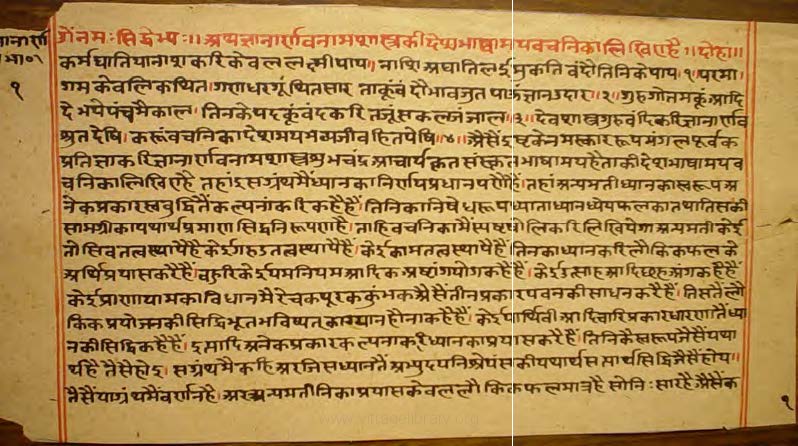 ॐनमःसिद्धेभ्यः॥ अथज्ञानार्णवनामशास्त्रकीदेशभाषामयवचनिकालिखिएहै॥दोहा॥
कर्मघातियानाशकरिकेवललक्ष्मीपाय। नाशिअघातिलईमुकतिवंदौतिनिकेपाय॥१॥परमा
गमकेवलिकथित।गणधरगूंथितसार ताकूंवंदौभावजुत पार्ऊज्ञानउदार॥२॥गुरुगोतमकूंआदि
देभयेपंचमैकाल। तिनकेपदकूंवंदकरि तजूंसकलजंजाल॥३॥देवशास्त्रगुरुवंदिकरिज्ञानार्णव
श्रुतदेषि।करूंवचनिकादेशमयभव्यजीवहितपेषि॥४॥ऐसैंइष्टकेनमस्काररूपमंगलपूर्वक
प्रतिज्ञाकरिज्ञानार्णवनामशास्त्रशुभचंद्रआचार्यकृतसंस्कृतभाषामयहैताकीदेशभाषामयव
चनिकालिखिएहै तहांइसग्रंथमैंध्यानकानिर्णयप्रधानपणैंहैं।तहांअन्यमतीध्यानकास्वरूपअ
नेकप्रकारस्वबुद्धितैंकल्पनाकरिकहैहैं।तिनिकानिषेधरूपध्याताध्यानध्येयफलकातथातिसकी
सामग्रीकायथार्थप्रमाणसिद्धनिरूपणहै।ताहिवचनिकामैंस्पष्टषोलिकरिलिखियेगाअन्यमतीकेई
तौसिवतत्वस्थापैहैकेईगरुडतत्वस्थापैहैं।केईकामतत्वस्थापैहैं।तिनकाध्यानकरिलौकिकफलके
अर्थिप्रयासकरैहैं।बहुरिकेईयमनियमआदिकअष्टांगयोगकहैहैं।केईउत्साहआदिछहअंगकहैहैं
केईप्राणायामकाविधानमैरेचकपूरककुंभकऐसैंतीनप्रकारपवनकीसाधनकरैहैं।तिसतैंलौ
किकप्रयोजनकीसिद्धिभूतभविष्यतकाज्ञानहोनाकहैहैं।केईपार्थिवीआदिचारिप्रकारधारणातैंध्या
नकीसिद्धिकहैहैं।इत्यादिअनेकप्रकारकल्पनाकरिध्यानकाप्रयासकरैहैं।तिनिकैस्वरूपजैसैंयथा
र्थहैतैसैंहोइ।सग्रंथमैंकहिअरजिसध्यानतैंअभ्युदयनिश्रेयसकीयथार्थसमार्थसिद्धिजैसैंहोय॥
तैसैंयाग्रंथमैंवर्णनहै।अरअन्यमतीनिकाप्रयासकेवललौकिकफलमात्रहैसोनिःसारहैऐसैंक
१
१